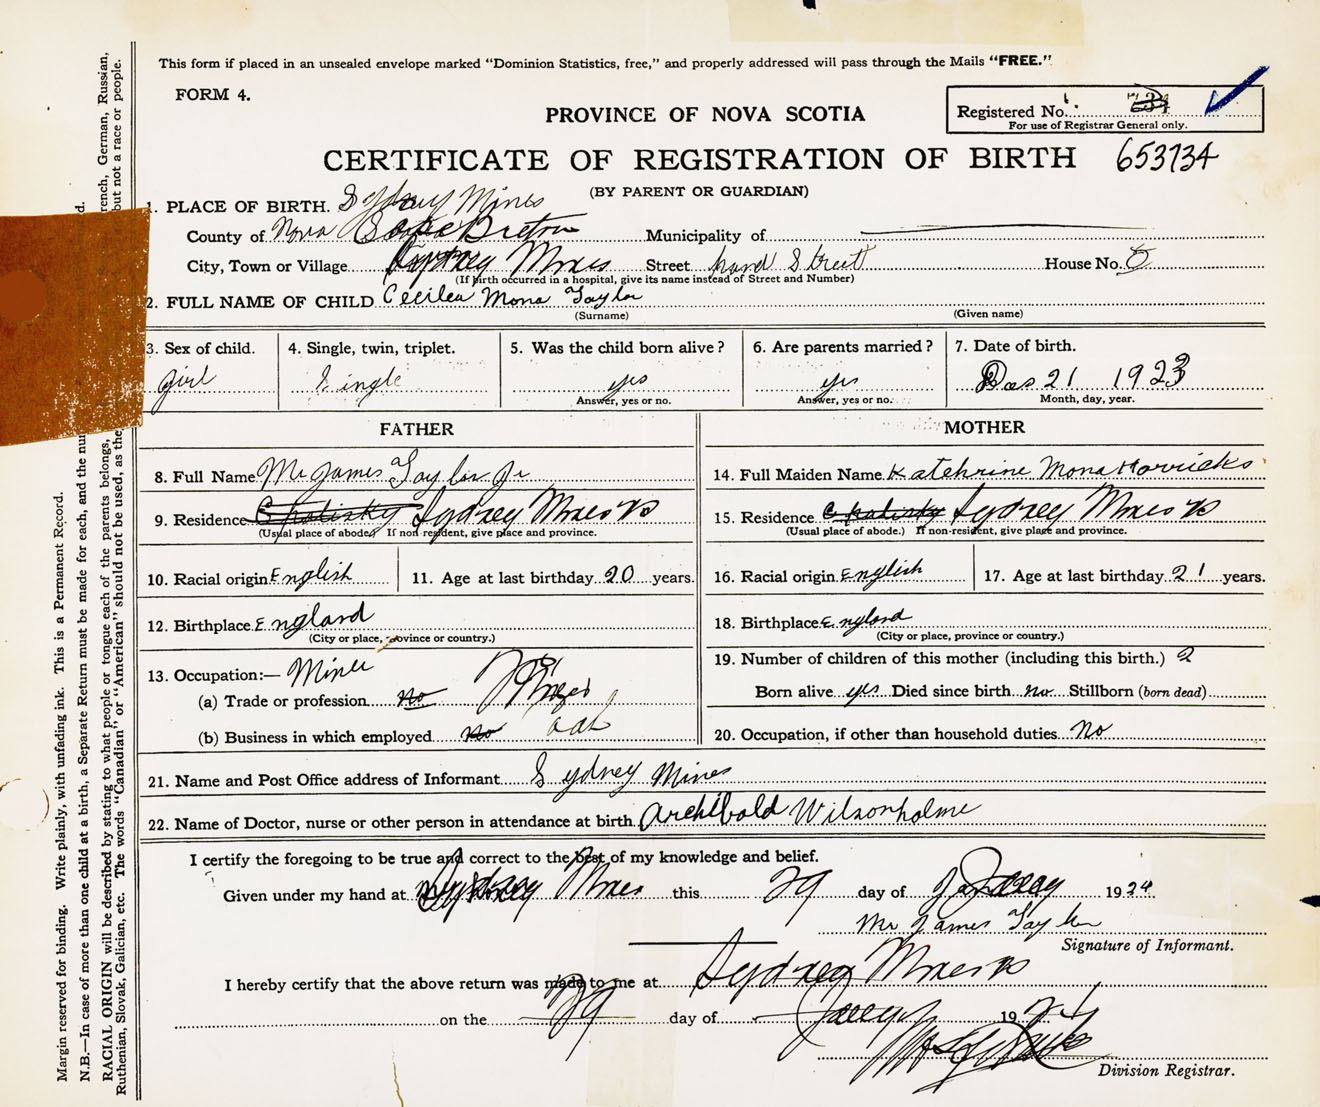 This form if placed in an unsealed envelope marked "Dominion Statistics, free," and properly addressed will pass through the Mails "FREE."
FORM 4.
PROVINCE OF NOVA SCOTIA
Registered No.
For use of Registrar General only.
CERTIFICATE OF REGISTRATION OF BIRTH 653734
(BY PARENT OR GUARDIAN)
1. PLACE OF BIRTH. Sydney Mines
County of Nova Cape Breton Municipality of
City, Town or Village Sydney Mines Street Street House No.
(If birth occurred in a hospital, give its name instead of Street and Number)
2. FULL NAME OF CHILD Cecilea Mona Taylor
(Surname) (Given name)
3. Sex of child. 4. Single, twin, triplet. 5. Was the child born alive? 6. Are parents married? 7. Date of birth.
girl Single yes yes Des 21 1923
Answer, yes or no. Answer, yes or no. Month, day, year.
FATHER MOTHER
8. Full Name Mr James Taylor Jr
14. Full Maiden Name Katehrine Mona Horricks
9. Residence Sydney Mines NS
(Usual place of abode.) If non-resident, give place and province.
15. Residence Sydney Mines NS
(Usual place of abode.) If non-resident, give place and province.
10. Racial origin English 11. Age at last birthday 20 years.
16. Racial origin English 17. Age at last birthday 21 years.
12. Birthplace England
(City or place, province or country.)
18. Birthplace England
(City or place, province or country.)
13. Occupation:— Miner
(a) Trade or profession no Miner
(b) Business in which employed no
19. Number of children of this mother (including this birth.) 2
Born alive yes Died since birth no Stillborn (born dead)
20. Occupation, if other than household duties No
21. Name and Post Office address of Informant Sydney Mines
22. Name of Doctor, nurse or other person in attendance at birth Archibald Wilsonholme
I certify the foregoing to be true and correct to the best of my knowledge and belief.
Given under my hand at Sydney Mines this 29 day of 1924
Mr James Taylor
Signature of Informant.
I hereby certify that the above return was made to me at Sydney Mines NS
on the 29 day of 1924
Division Registrar.
Margin reserved for binding. Write plainly, with unfading ink. This is a Permanent Record.
N.B.—In case of more than one child at a birth, a Separate Return must be made for each, and the
RACIAL ORIGIN will be described by stating to what people or tongue each of the parents belongs, French, German, Russian,
Ruthenian, Slovak, Galician, etc. The words "Canadian" or "American" should not be used, as they but not a race or people.